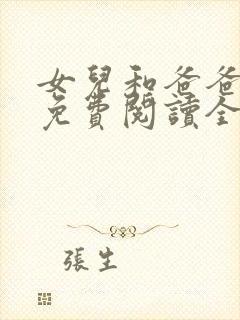 女兒和爸爸
免費閱讀全
張生